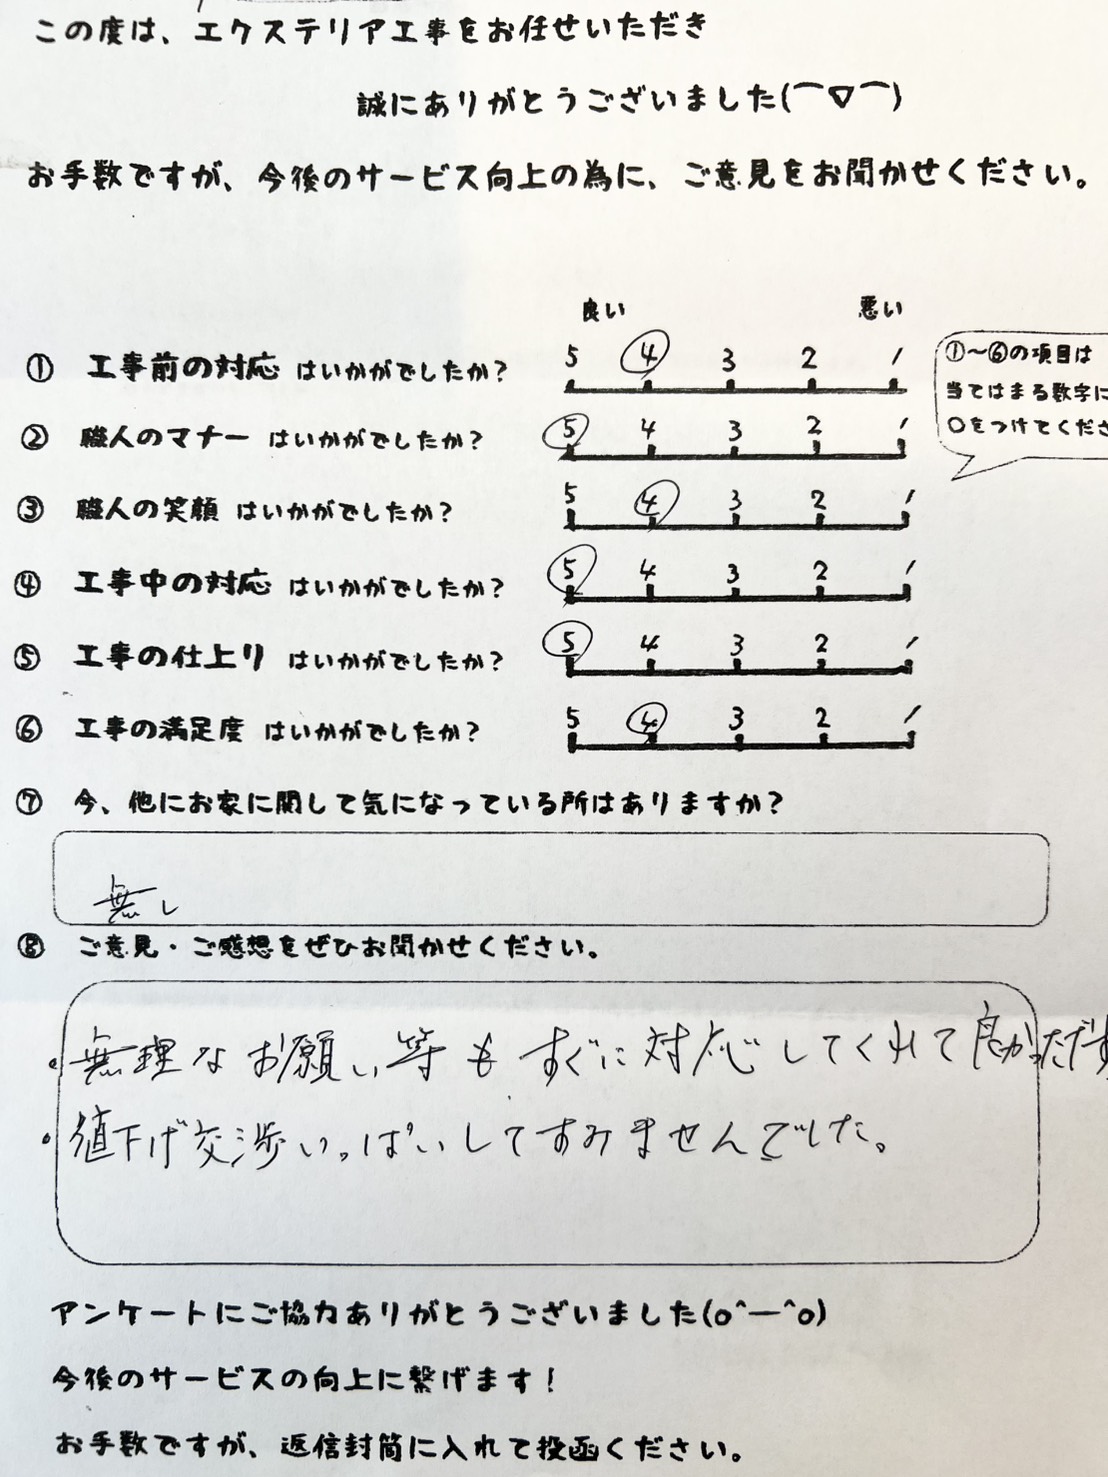 この度は、エクステリア工事をお任せいただき
誠にありがとうございました(⌒▽⌒)
お手数ですが、今後のサービス向上の為に、ご意見をお聞かせください。
良い 悪い
① 工事前の対応 はいかがでしたか? 5 4 3 2 1
①〜⑥の項目は
当てはまる数字に
○をつけてくださ
② 職人のマナー はいかがでしたか? 5 4 3 2 1
③ 職人の笑顔 はいかがでしたか? 5 4 3 2 1
④ 工事中の対応 はいかがでしたか? 5 4 3 2 1
⑤ 工事の仕上り はいかがでしたか? 5 4 3 2 1
⑥ 工事の満足度 はいかがでしたか? 5 4 3 2 1
⑦ 今、他にお家に関して気になっている所はありますか?
無し
⑧ ご意見・ご感想をぜひお聞かせください。
・無理なお願い等もすぐに対応してくれて良かっただす
・値下げ交渉いっぱいしてすみませんでした。
アンケートにご協力ありがとうございました(o^ー^o)
今後のサービスの向上に繋げます!
お手数ですが、返信封筒に入れて投函ください。